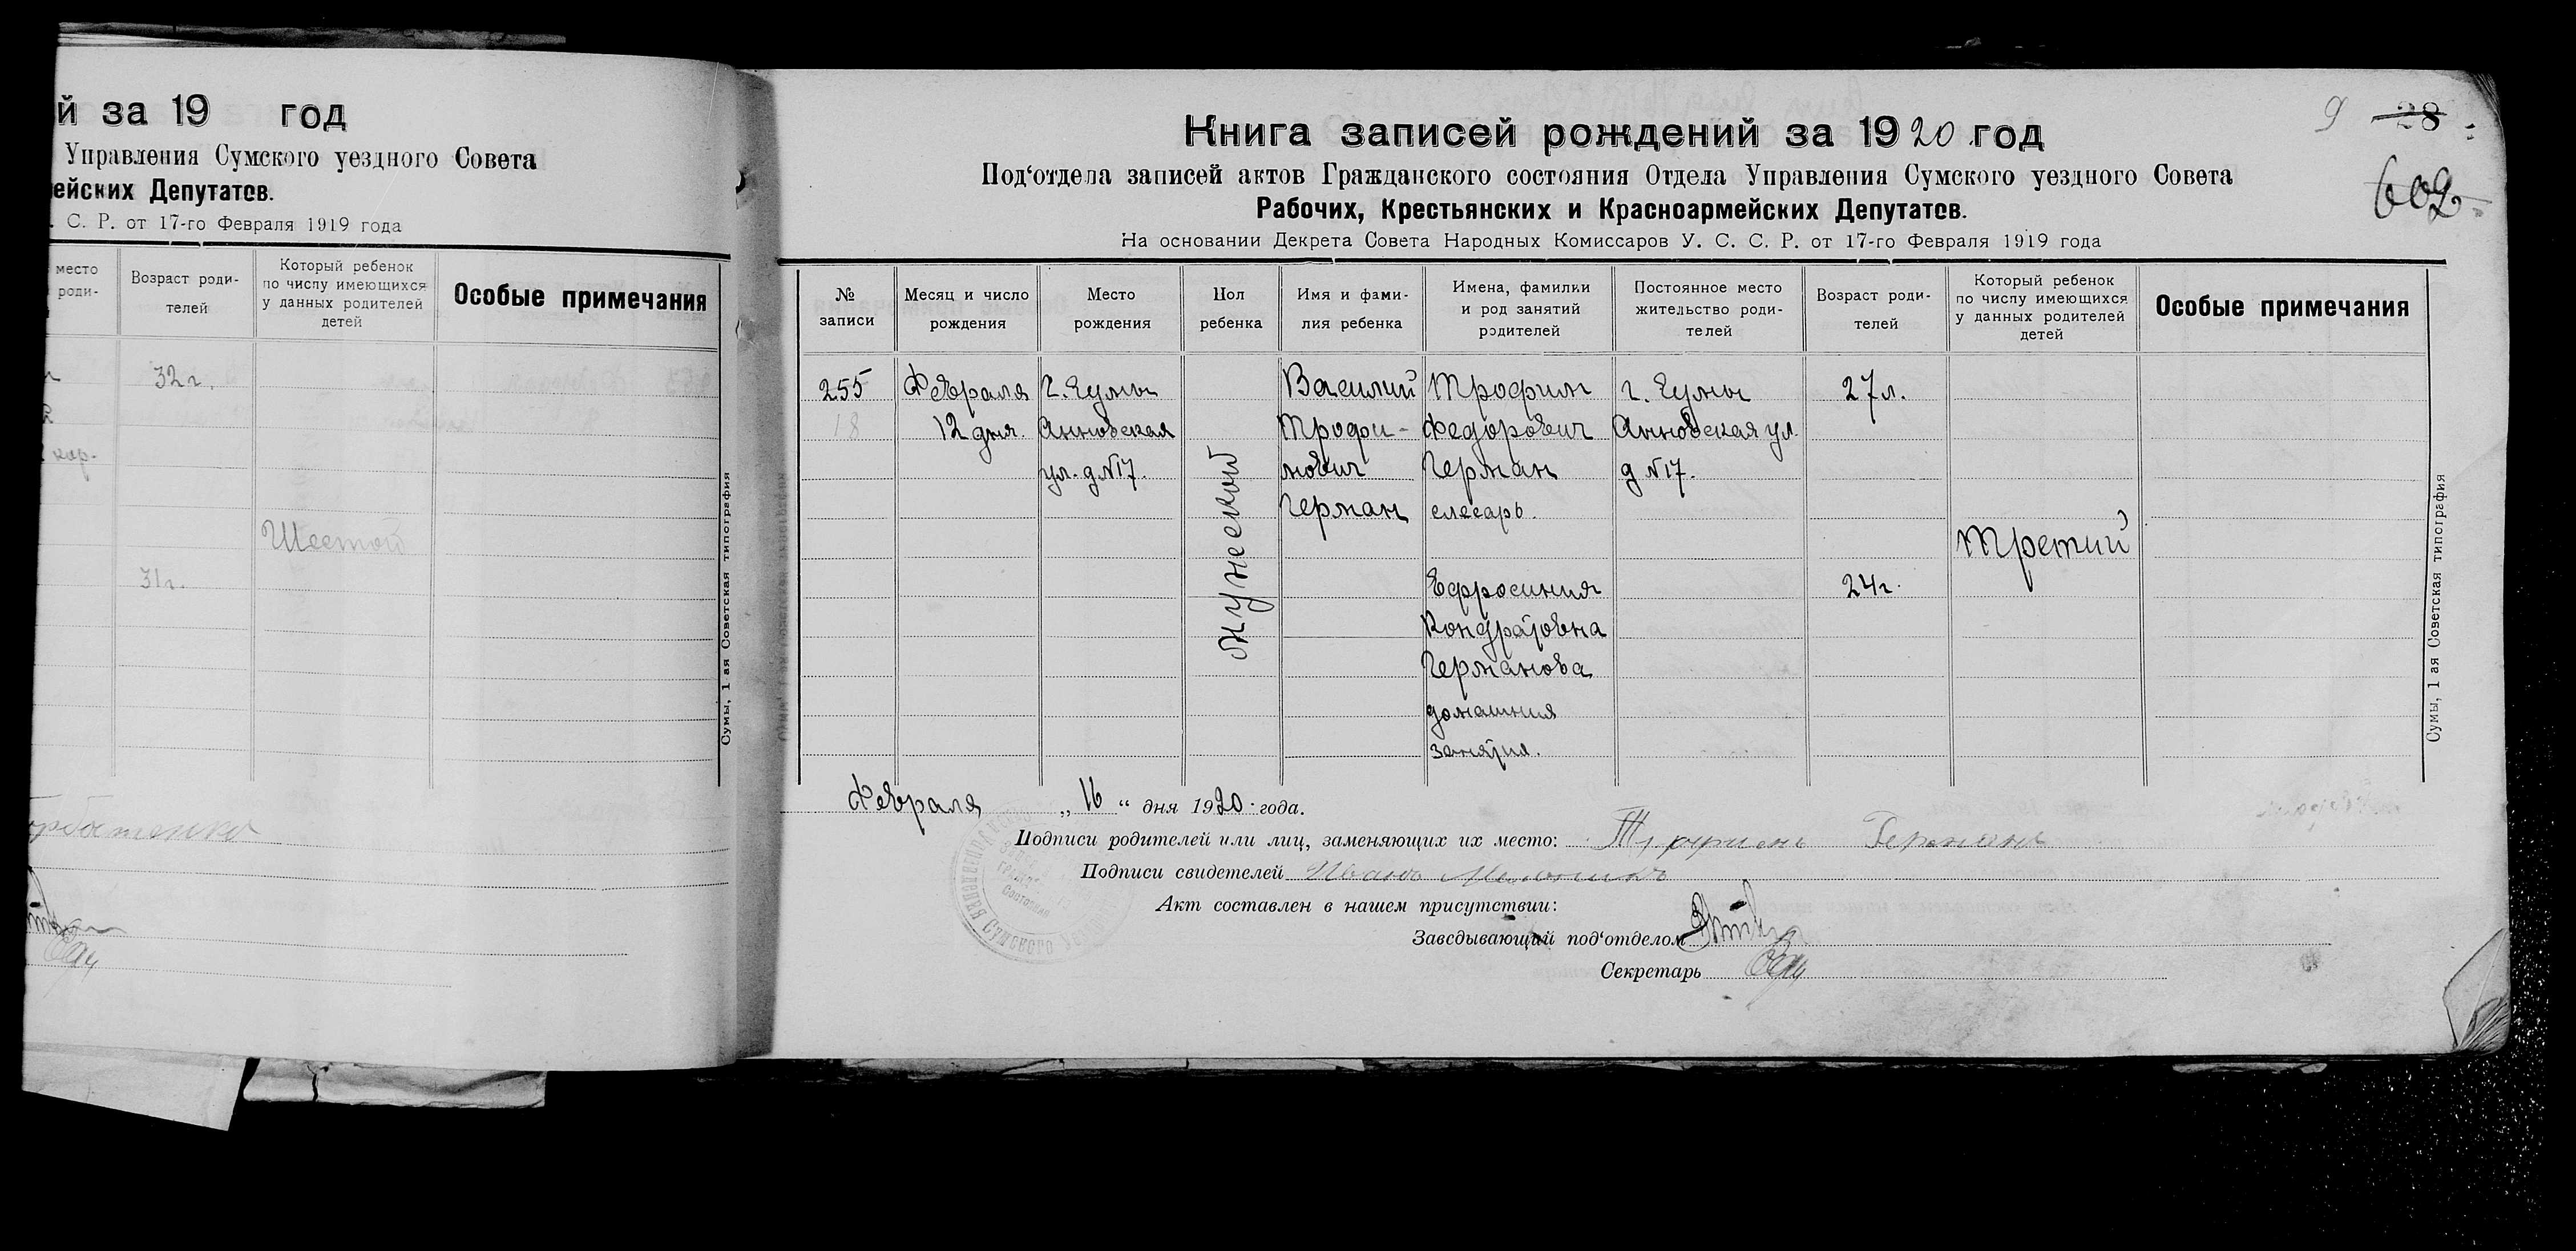 й за 19 год
Управления Сумского уездного Совета
ейских Депутатов.
. С. Р. от 17-го Февраля 1919 года
место
роди-
Возраст роди-
телей
Который ребенок
по числу имеющихся
у данных родителей
детей
Особые примечания
32 г.
кор.
Шестой
31 г.
Сумы, 1-ая Советская типография
Книга записей рождений за 1920 год
9 28
602
Под‘отдела записей актов Гражданского состояния Отдела Управления Сумского уездного Совета
Рабочих, Крестьянских и Красноармейских Депутатов.
На основании Декрета Совета Народных Комиссаров У. С. С. Р. от 17-го Февраля 1919 года
№
записи
Месяц и число
рождения
Место
рождения
Пол
ребенка
Имя и фами-
лия ребенка
Имена, фамилии
и род занятий
родителей
Постоянное место
жительство роди-
телей
Возраст роди-
телей
Который ребенок
по числу имеющихся
у данных родителей
детей
Особые примечания
255
18
Февраля
12 дня.
г. Сумы
Анновская
ул. д №17.
мужеский
Василий
Трофи-
мович
Герман
Трофим
Федорович
Герман
слесарь.
Ефросиния
Кондратовна
Германова
домашния
занятия.
г. Сумы
Анновская ул.
д №17.
27 л.
24 г.
Третий
Сумы, 1-ая Советская типография
Февраля „ 16 “ дня 1920 года.
Подписи родителей или лиц, заменяющих их место: Трофимъ Германъ
Подписи свидетелей Иванъ
Акт составлен в нашем присутствии:
Заведывающий под‘отделом
Секретарь